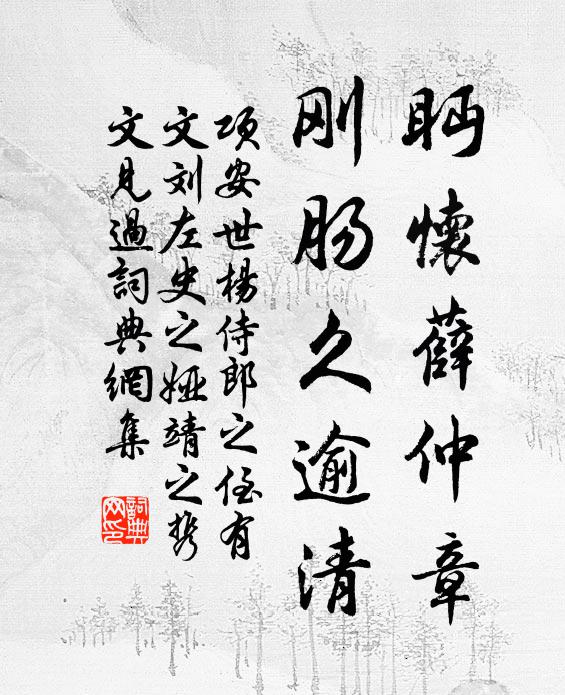 眄懷薛仲章
刚肠久逾清
项安世楊侍郎之侄有
文刘左史之婭靖之携
文見過詞典網集
詞典網印